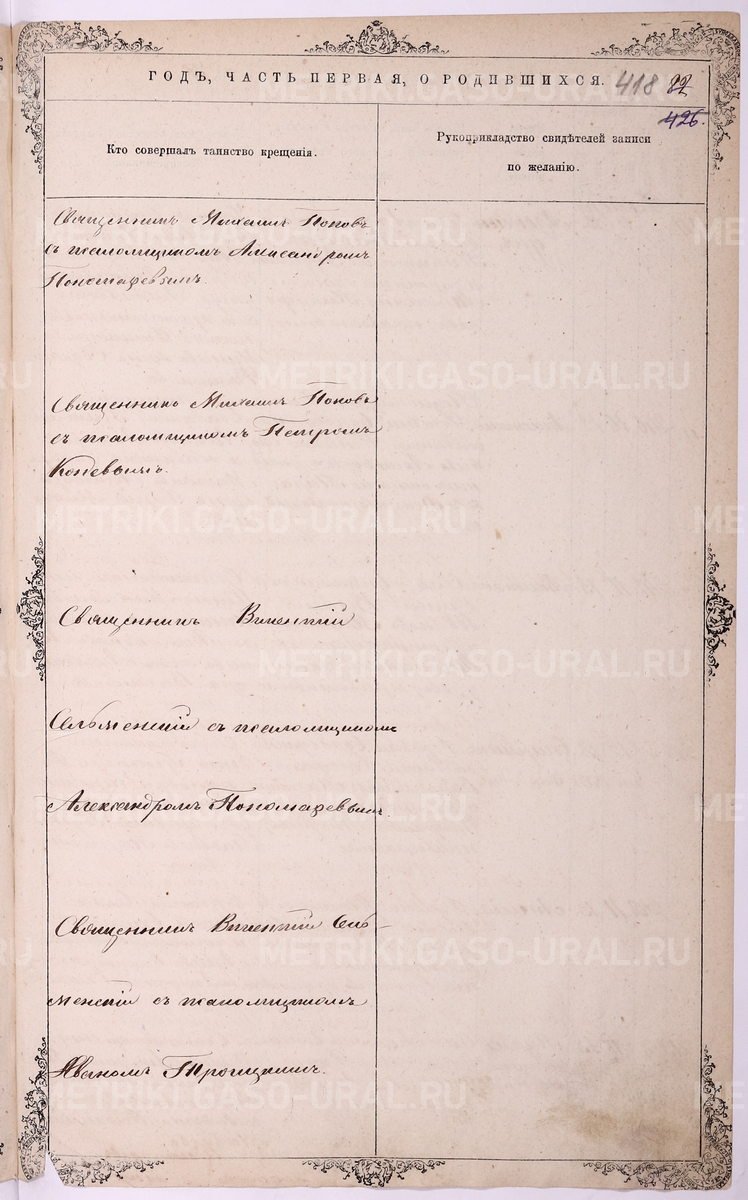 ГОДЪ, ЧАСТЬ ПЕРВАЯ, О РОДИВШИХСЯ. 418 82
426.
Кто совершалъ таинство крещенія.
Рукоприкладство свидѣтелей записи
по желанію.
Священникъ Михаилъ Поповъ
съ псаломщикомъ Александромъ
Пономаревымъ.
Священникъ Михаилъ Поповъ
съ псаломщикомъ Петромъ
Коневымъ.
Священникъ Викентій
Сельменскій съ псаломщикомъ
Александромъ Пономаревымъ.
Священникъ Викентій Сель-
менскій съ псаломщикомъ
Иваномъ Троицкимъ.
METRIKI.GASO-URAL.RU